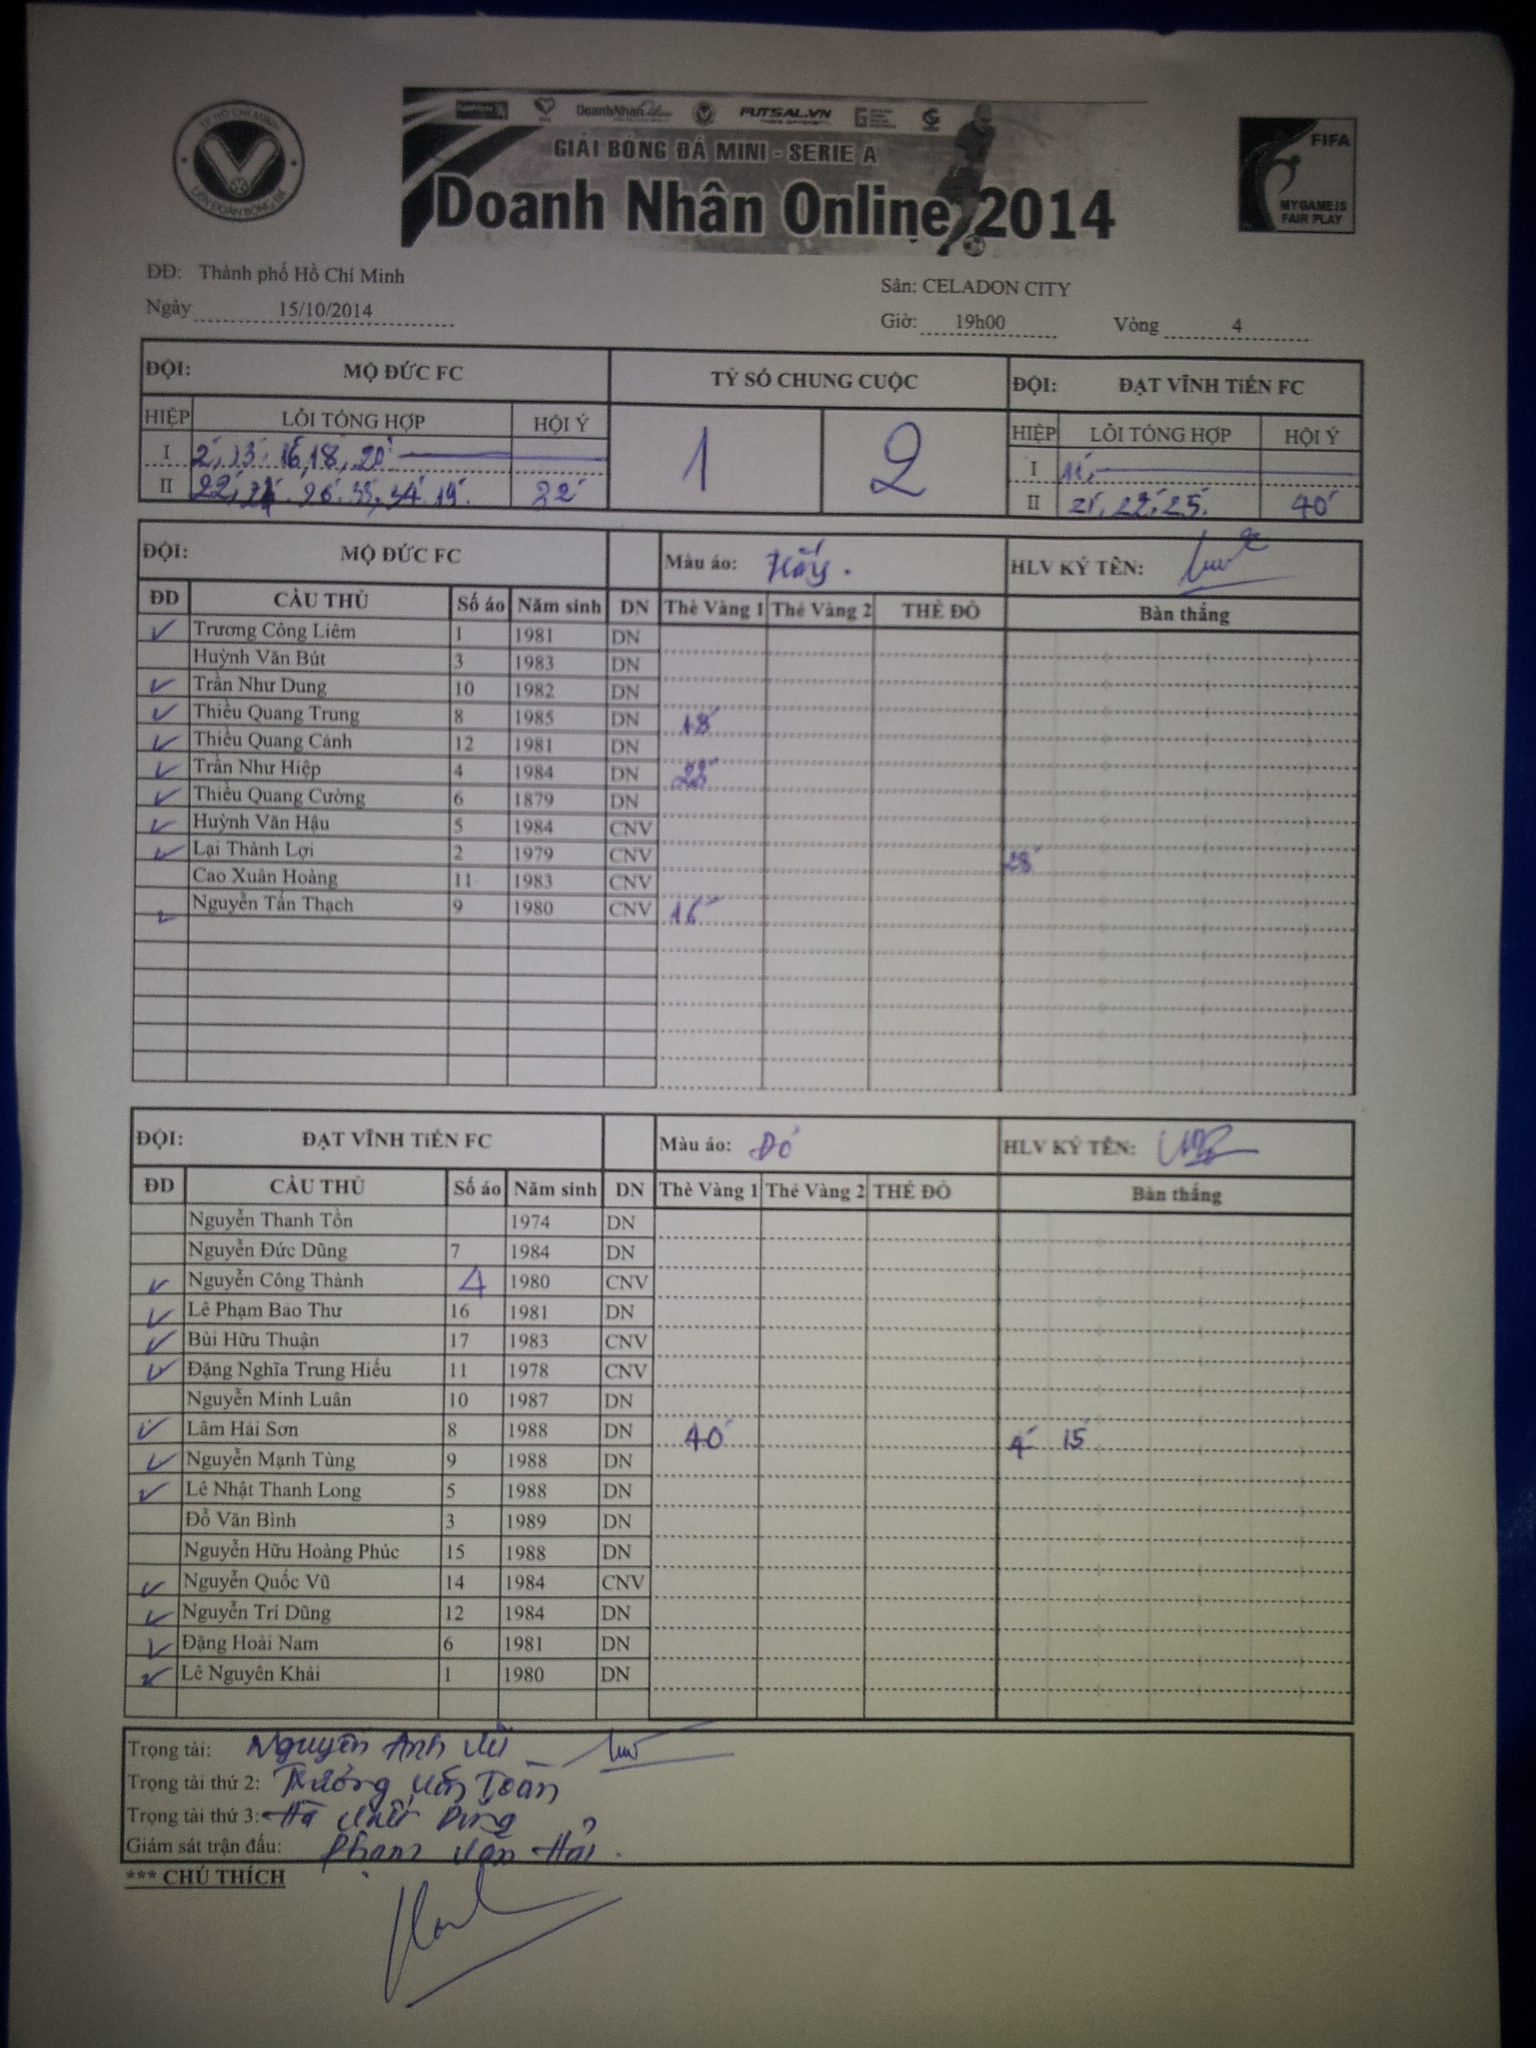 TP HỒ CHÍ MINH
LIÊN ĐOÀN BÓNG ĐÁ
DoanhNhân FUTSAL.VN
GIẢI BÓNG ĐÁ MINI - SERIE A
Doanh Nhân Online 2014
FIFA
MY GAME IS
FAIR PLAY
ĐĐ: Thành phố Hồ Chí Minh
Sân: CELADON CITY
Ngày 15/10/2014
Giờ: 19h00 Vòng 4
ĐỘI: MỘ ĐỨC FC TỶ SỐ CHUNG CUỘC ĐỘI: ĐẠT VĨNH TiẾN FC
HIỆP LỖI TỔNG HỢP HỘI Ý 1 2 HIỆP LỖI TỔNG HỢP HỘI Ý
I 2', 13' 16', 18', 20' I 11'
II 22' 26' 33', 34' 19' 22' II 21', 22', 25' 40'
ĐỘI: MỘ ĐỨC FC Màu áo: HLV KÝ TÊN:
ĐD CẦU THỦ Số áo Năm sinh DN Thẻ Vàng 1 Thẻ Vàng 2 THẺ ĐỎ Bàn thắng
✓ Trương Công Liêm 1 1981 DN
Huỳnh Văn Bút 3 1983 DN
✓ Trần Như Dung 10 1982 DN
✓ Thiều Quang Trung 8 1985 DN 18'
✓ Thiều Quang Cảnh 12 1981 DN
✓ Trần Như Hiệp 4 1984 DN 22'
✓ Thiều Quang Cường 6 1879 DN
✓ Huỳnh Văn Hậu 5 1984 CNV
✓ Lại Thành Lợi 2 1979 CNV 28'
Cao Xuân Hoàng 11 1983 CNV
✓ Nguyễn Tấn Thạch 9 1980 CNV 16'
ĐỘI: ĐẠT VĨNH TiẾN FC Màu áo: Đỏ HLV KÝ TÊN:
ĐD CẦU THỦ Số áo Năm sinh DN Thẻ Vàng 1 Thẻ Vàng 2 THẺ ĐỎ Bàn thắng
Nguyễn Thanh Tồn 1974 DN
Nguyễn Đức Dũng 7 1984 DN
✓ Nguyễn Công Thành 4 1980 CNV
✓ Lê Phạm Bảo Thư 16 1981 DN
✓ Bùi Hữu Thuận 17 1983 CNV
✓ Đặng Nghĩa Trung Hiếu 11 1978 CNV
Nguyễn Minh Luân 10 1987 DN
✓ Lâm Hải Sơn 8 1988 DN 40' 4' 15'
✓ Nguyễn Mạnh Tùng 9 1988 DN
✓ Lê Nhật Thanh Long 5 1988 DN
Đỗ Văn Bình 3 1989 DN
Nguyễn Hữu Hoàng Phúc 15 1988 DN
✓ Nguyễn Quốc Vũ 14 1984 CNV
✓ Nguyễn Trí Dũng 12 1984 DN
✓ Đặng Hoài Nam 6 1981 DN
✓ Lê Nguyên Khải 1 1980 DN
Trọng tài: Nguyễn Anh Vũ
Trọng tài thứ 2: Trương Văn Toàn
Trọng tài thứ 3: Hà Dũng
Giám sát trận đấu: Phạm Văn Hải.
*** CHÚ THÍCH